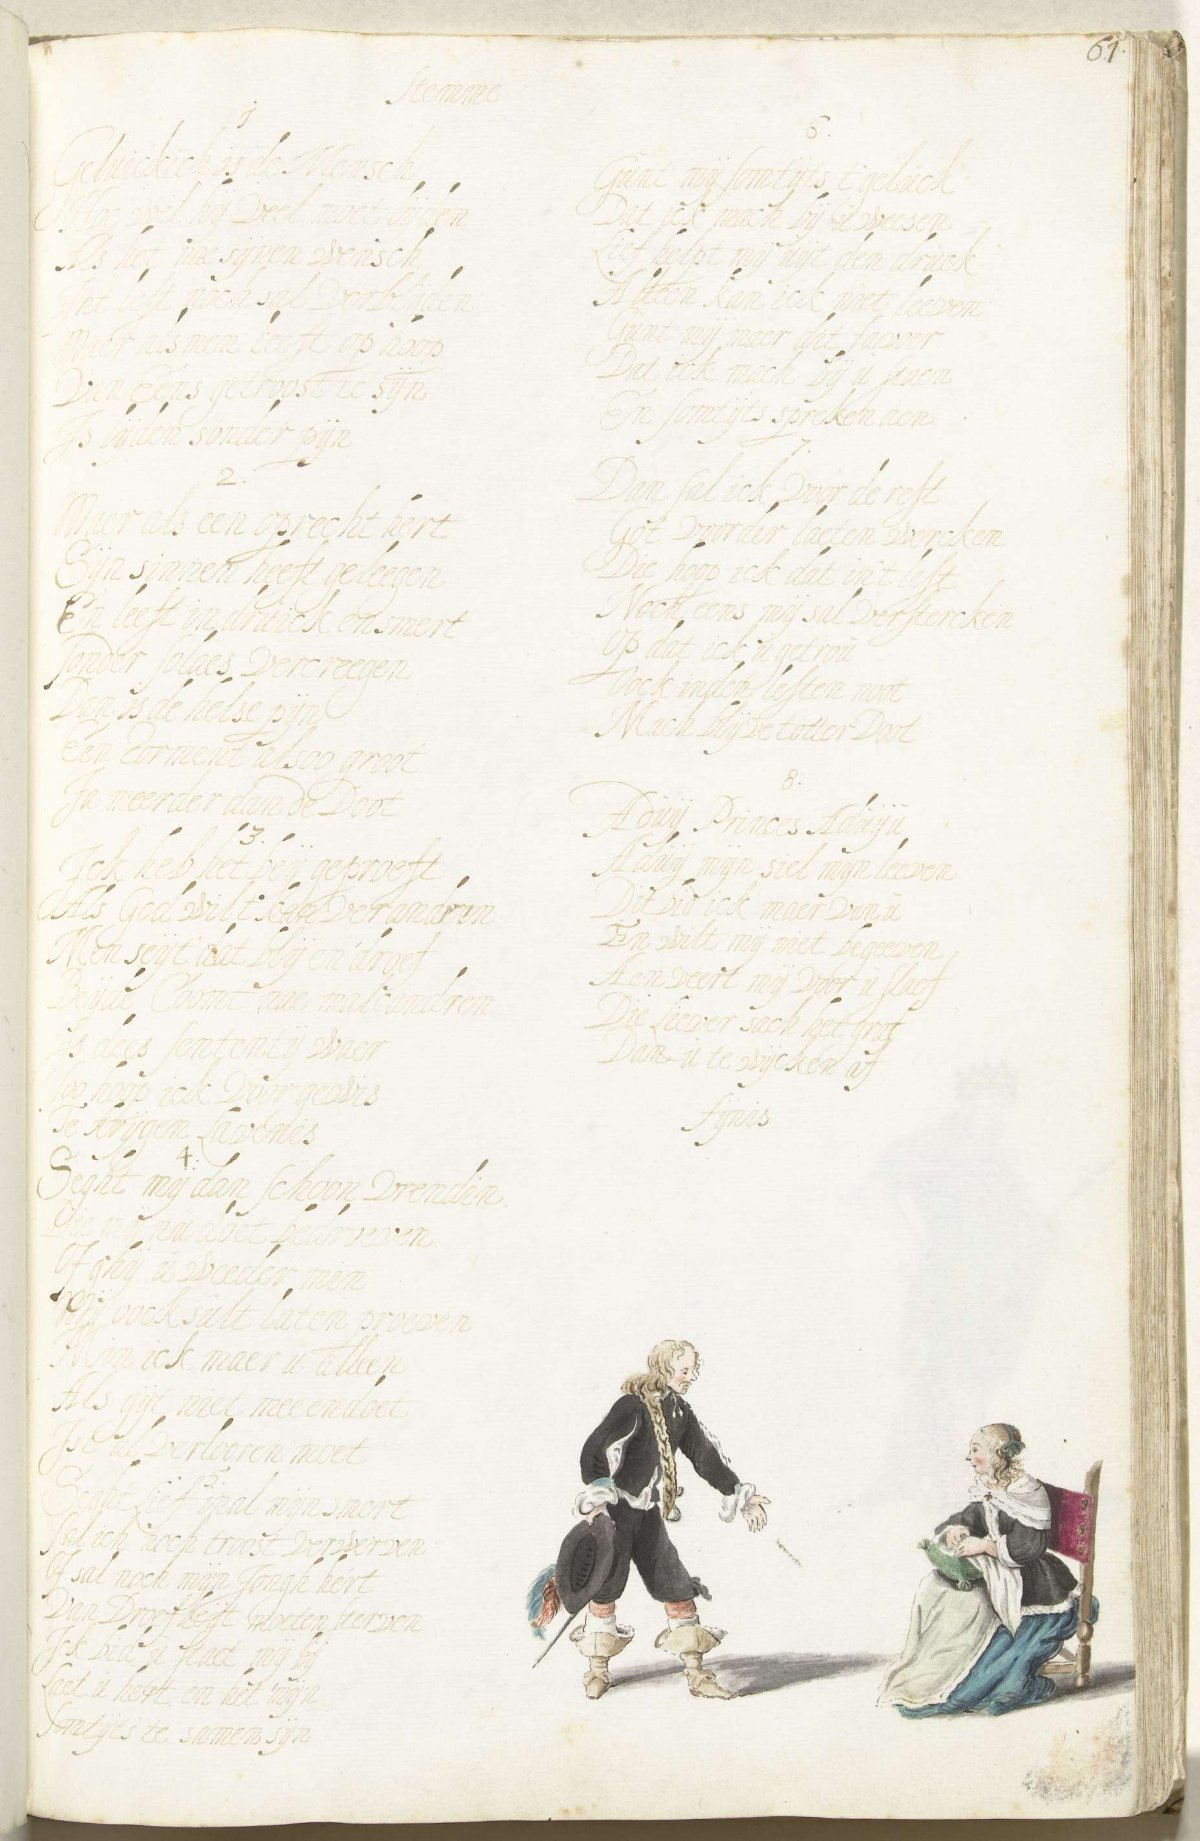 61.
Stemme
1
Geluickich is de Mensch
Hoe wel hij veel moet lijden
Als het nae sijnen wensch
Int lest noch sal verblijden
Maer alsmen leeft op hoop
Van eens getroost te sijn
Is lijden sonder pijn
2.
Maer als een oprecht hert
Sijn sinnen heeft geleegen
En leeft in druick en smert
sonder solaes vercreegen
Dan is de helse pijn
Een torment alsoo groot
Ja meerder dan de Doot
3.
Ick heb het beij geproeft
Als God wil t kan verandren
Men seijt dat blij en droef
Beijde Coomt nae malcandren
Is dees sententij waer
soo hoop ick voor gewis
Te krijgen Lavenis
4.
Seght mij dan schoon Vrendin
Die mij nu doet bedroeven
Of ghij u weeder min
Mij oock sult laten proeven
Min ick maer u alleen
Als gijt niet mee en doet
Ist al verlooren moet
5
Seght Lief sal mijn smert
Sal ick noch troost verwerven
Of sal noch mijn Jongh hert
Van Droefheijt moeten sterven
Ick bid u staet mij bij
Laet u hert en het mijn
somtijts te samen sijn
6.
Gunt mij somtijts t geluck
Dat ick mach bij u weesen
Lief helpt mij uijt den druck
Alleen kan ick niet leeven
Gunt mij maer dit favoor
Dat ick mach bij u staen
En somtijts spreken aen
7
Dan sal ick voor de rest
Got voorder laeten wercken
Die hoop ick dat in't lest
Noch eens mij sal verstercken
Op dat ick u getrou
Oock inden lesten noot
Mach blijve totter Doot
8.
Aduij Princes Aduiju
Aduij mijn siel mijn leeven
Dit bid ick maer van u
En wilt mij niet begeeven
Aen veert mij voor u slaef
Die Liever sach het graf
Dan u te wijcken af
fijnis